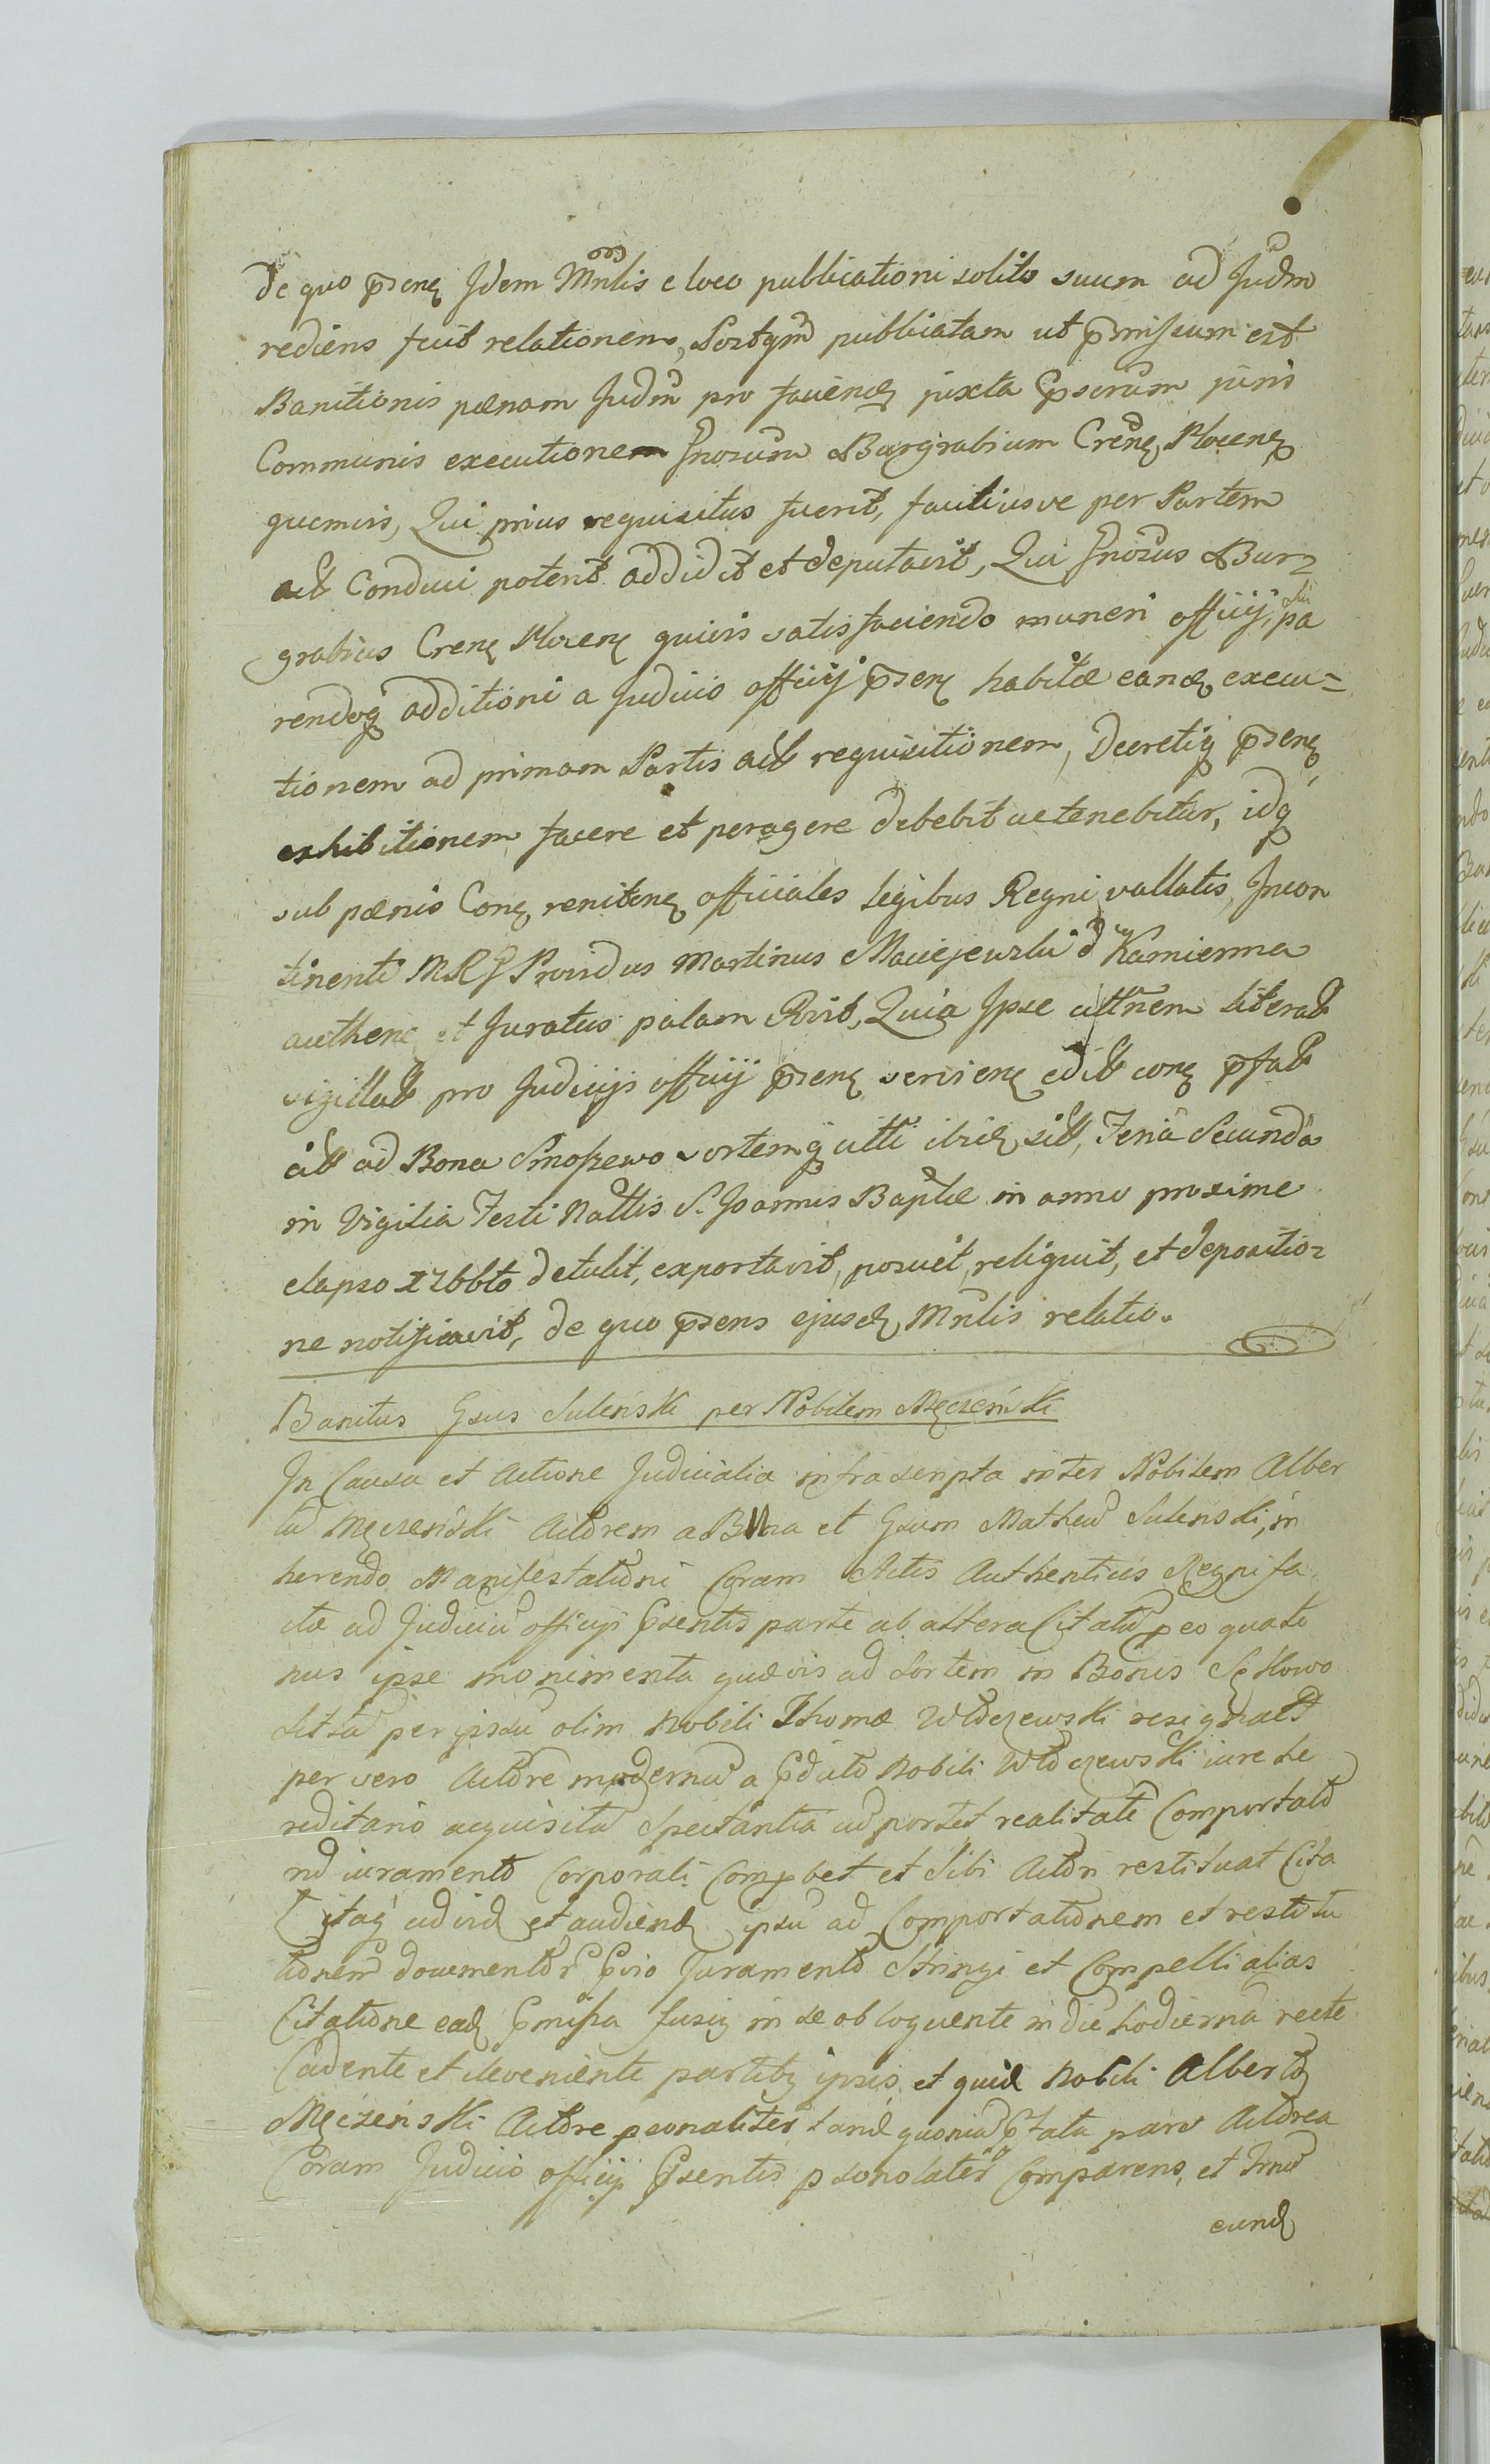 de quo prsens Idem Mnlis e loco publicationi solito suum ad Judm
rediens fecit relationem, Postqm publicatam ut prmissum est
Banitionis pænam Judm pro faciend juxta prscrûm juris
Communis executionem Gnosum Burgrabium Crens Plocens
quemvis, Qui prius requisitus fuerit, faciliusve per Partem
act Conduci poterit addidit et deputavit, Qui Gnosus Bur=
grabius Crens Plocens quivis satisfaciendo muneri officij sui, pa
rendoq additioni a Judicio officij prsens habitæ eand execu=
tionem ad primam Partis act requisitionem, Decretiq prsens
exhibitionem facere et peragere debebit ac tenebitur, idq
sub pænis Con renitens officiales Legibus Regni vallatis, Incon
tinenti MRG Providus Martinus Maciejewski d Kamienna
authens et Juratus palam Rvit, Quia Ipse cittnem literat
sigillat pro Judicijs officij prsens edit con pfat
act ad Bona Smoszewo sortemq citti ibid sitt, Feria Secunda
in Vigilia Festi Nattis S. Joannis Baptæ in anno proxime
elapso 1766to detulit, exportavit, posuit, reliquit, et depositio=
ne notificavit, de quo prsens ejusd Mnlis relatio.
Banitus Gsus Suleński per Nobilem Męczeński
In Causa et Actione Judicialia infrascripta inter Nobilem Alber
tu Męczeński Actorem ab Una et Gsum Matheu Suleński, in
herendo Manifestationi Coram Actis Authenticis Regni fa
ctæ ad Judiciu officij Prsentis parte ab altera Citatu p eo quate
nus ipse monimenta quævis ad sortem in Bonis
sitta per ipsu olim Nobili Thomæ Włoczewski resignat
per vero Actore modernu a Nobili Włoczewski iure he
reditario acquisita Spectantia ad portet realitate Comportato
rio iuramento Corporali Comprbet et Sibi Actori restituat Cita
Citaq ad vid et audiend ipsu ad Comportationem et restitu
tionem documentor Prvio Juramento Stringi et Compelli alias
Citatione ead Prmissa fusiq in se obloquente in die hodierna recte
Cadente et deveniente partibq ipsis et quid Nobili Alberto
Męczeński Actore psonaliter tand quoniu Prfata pars Actorea
Coram Judicio officij Prsentis psonaliter Comparens, et
eund